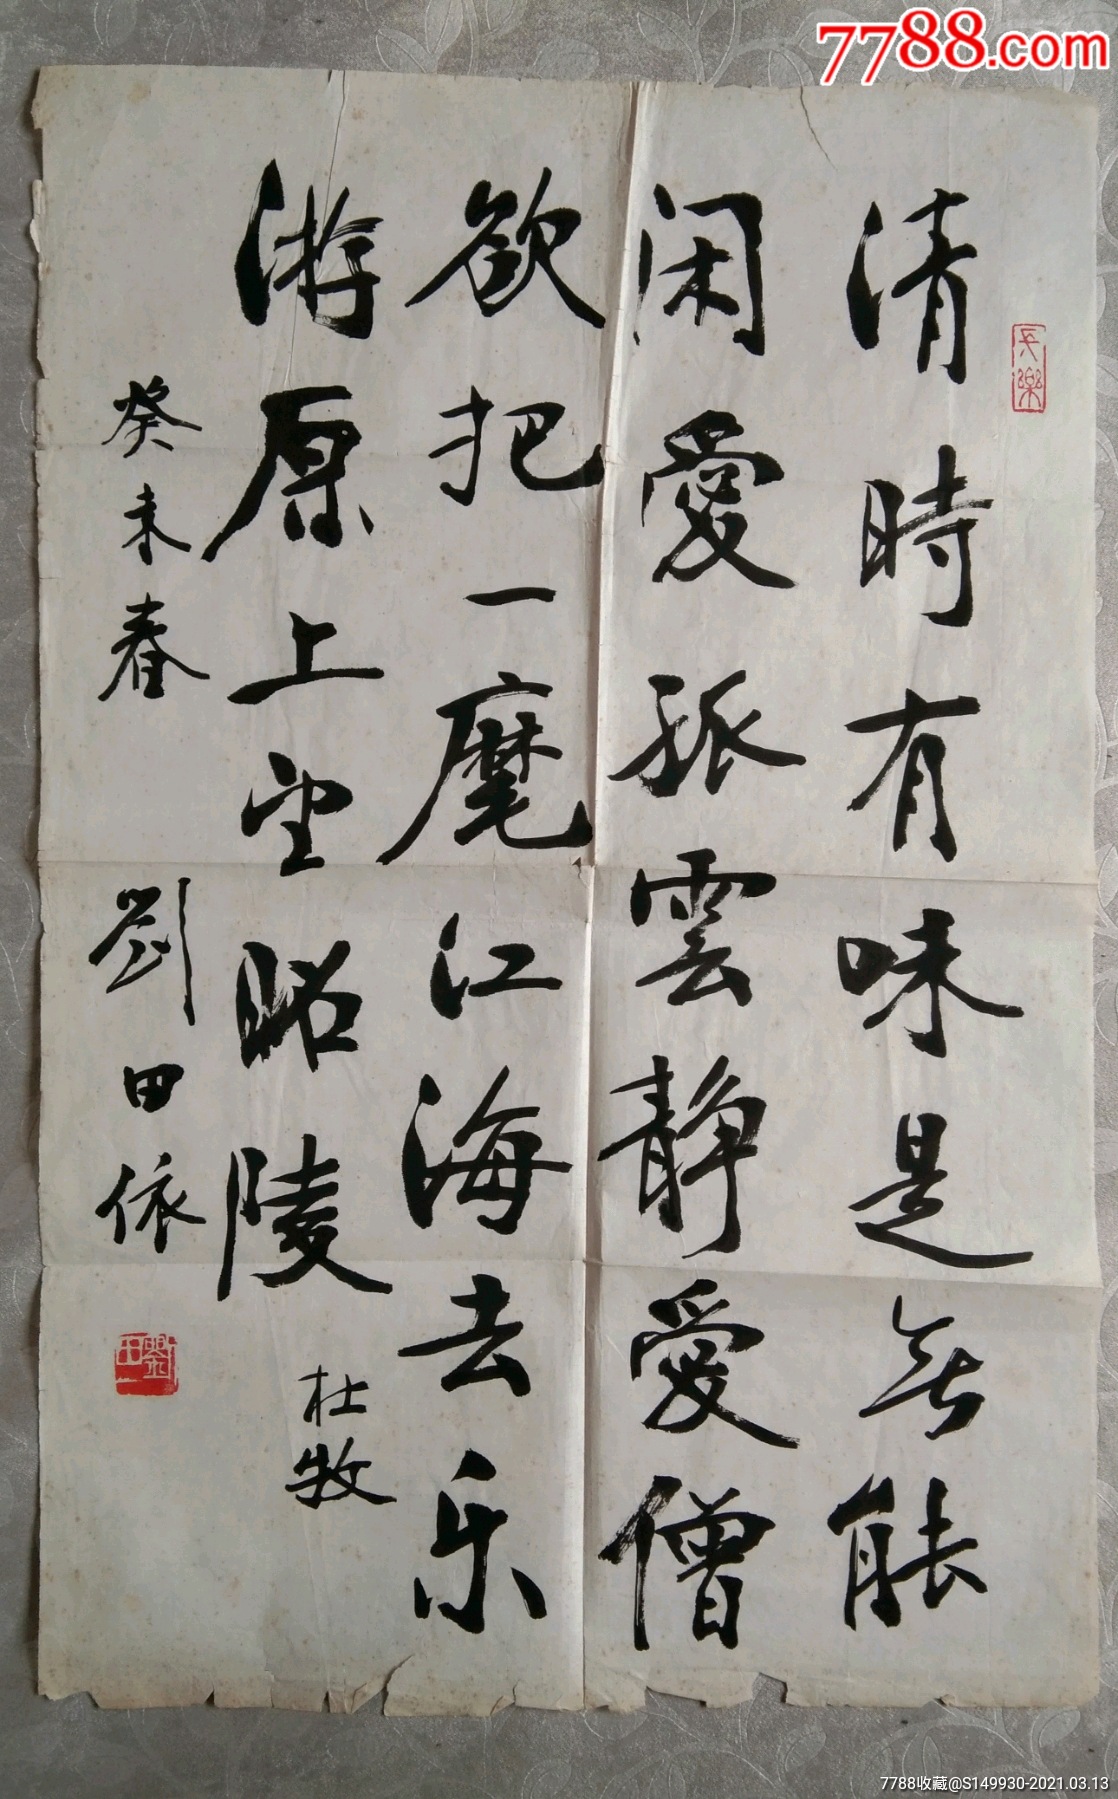 7788.com
長樂
清時有味是无能
闲愛孤雲靜愛僧
欲把一麾江海去乐
游原上望昭陵
杜牧
癸未春 劉田依
7788收藏@S149930-2021.03.13